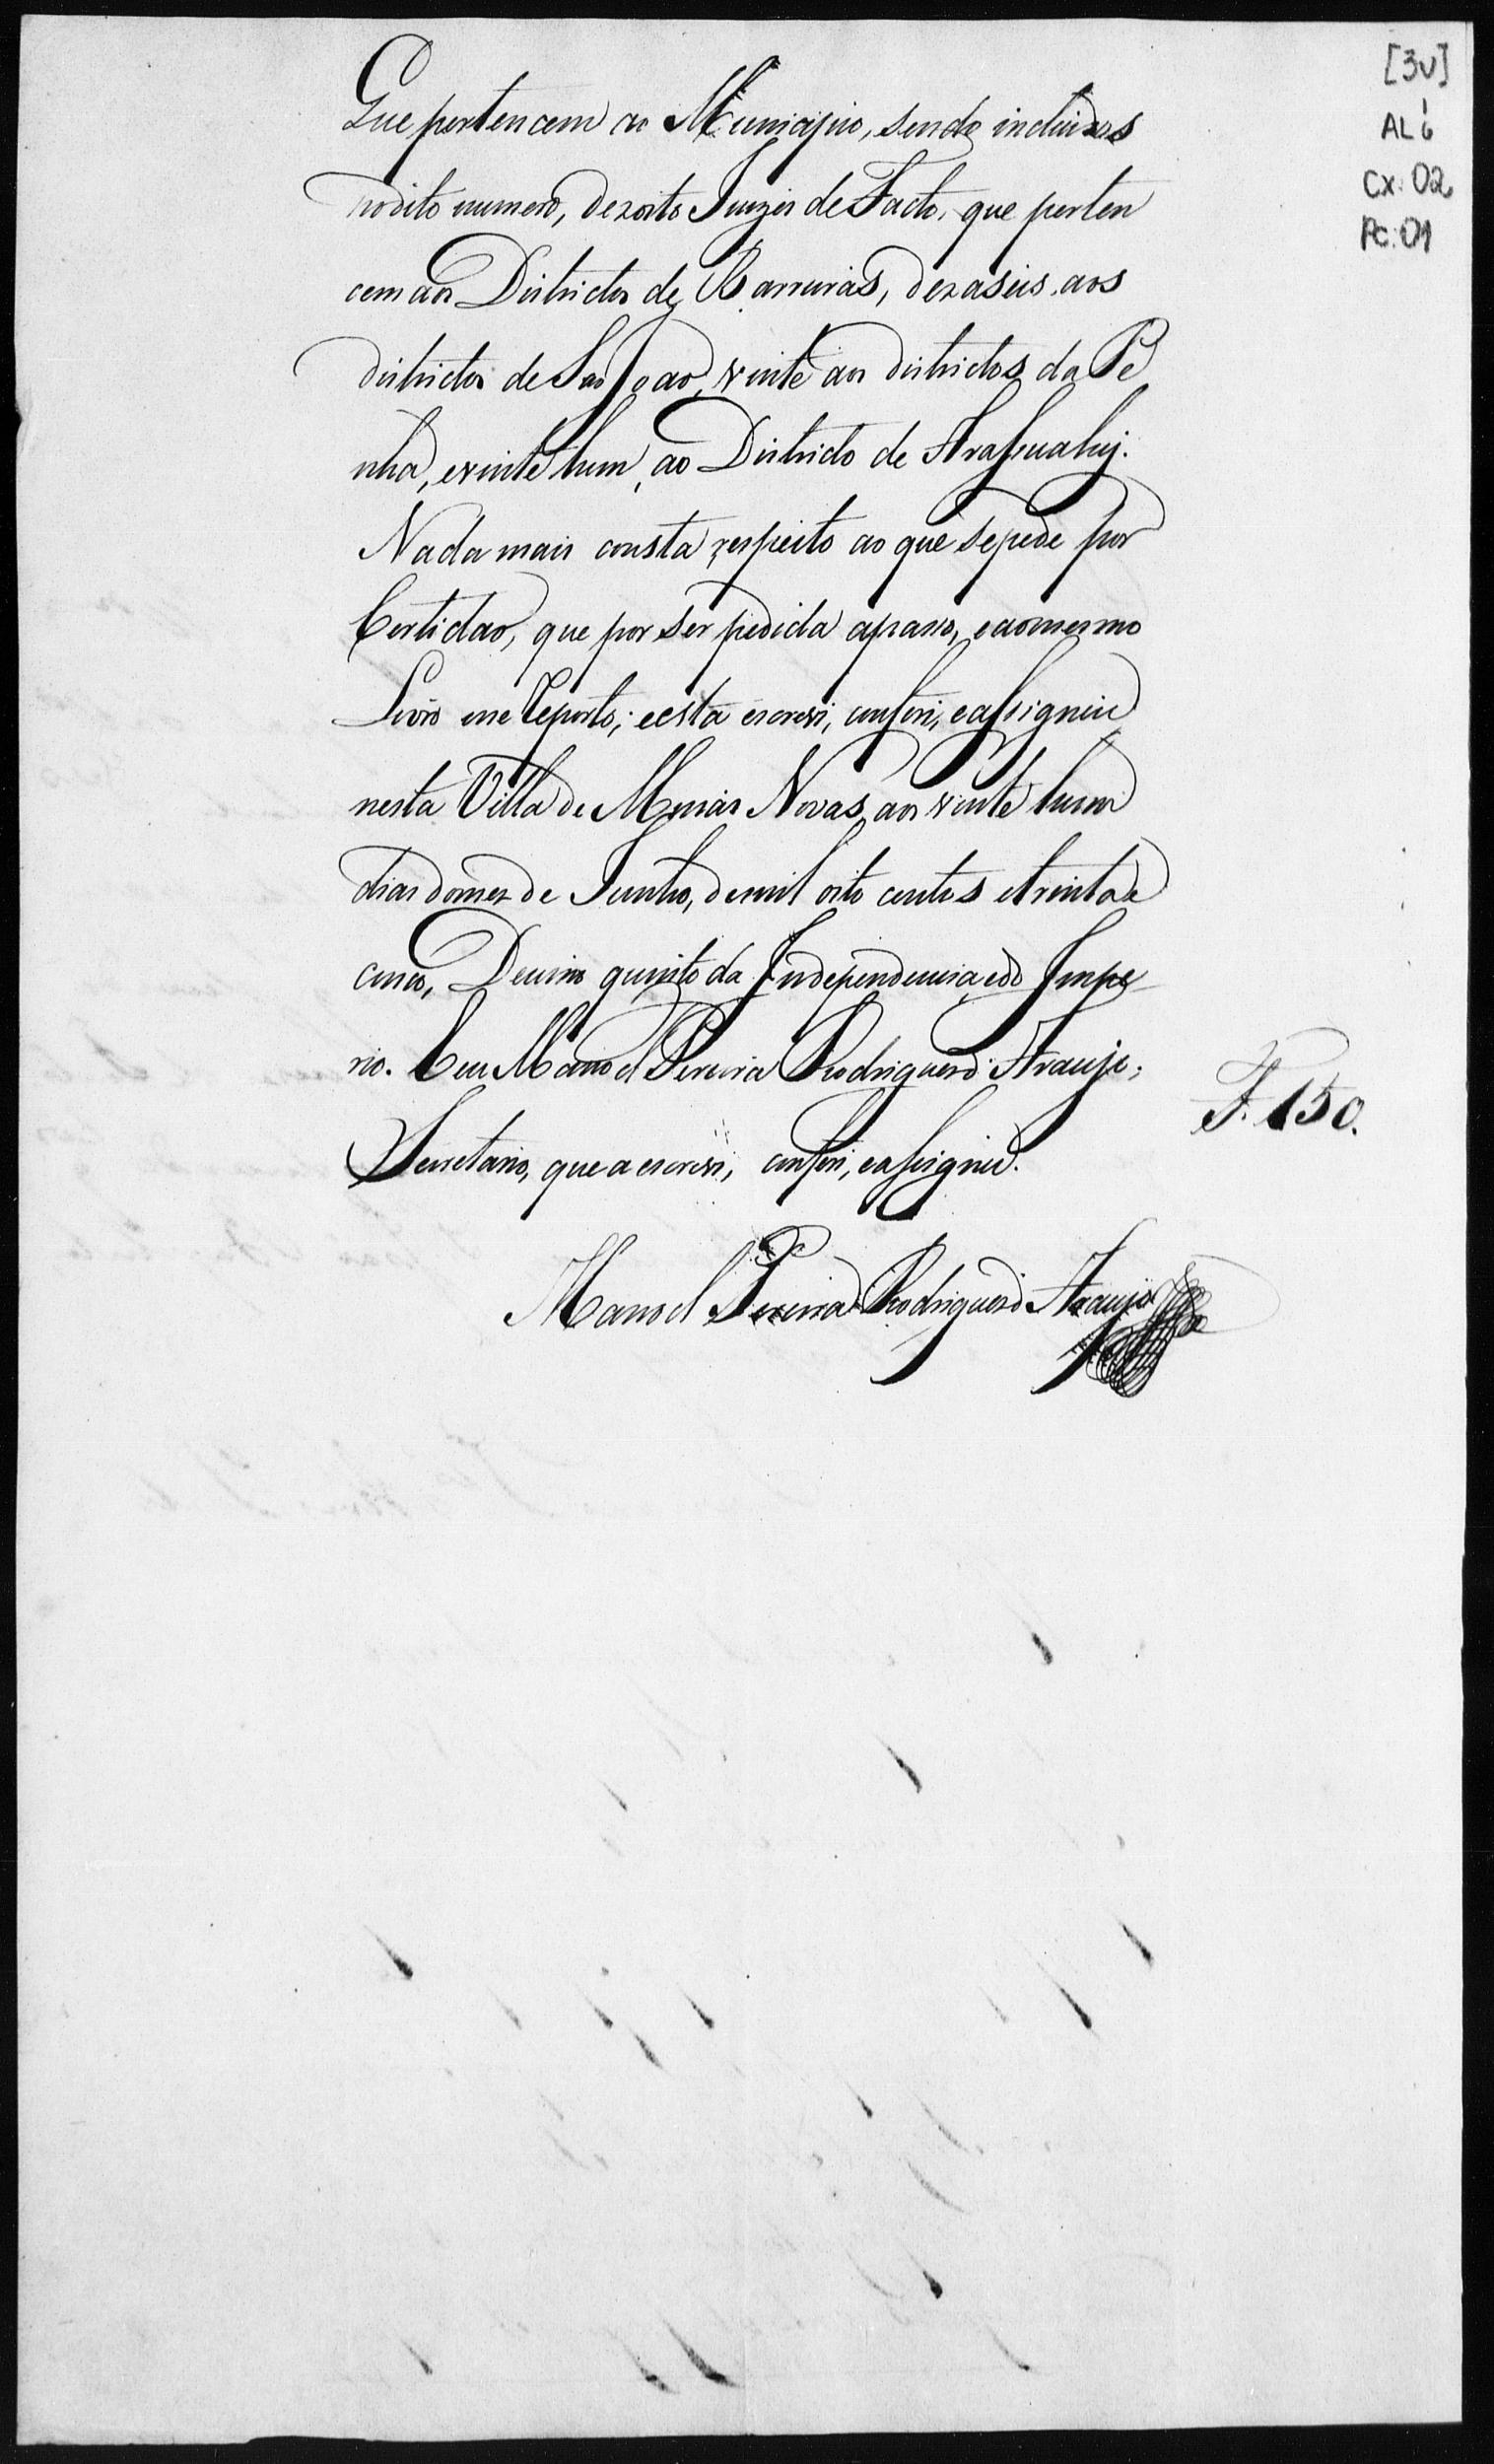 [3v]
AL 6
CX: 02
PC: 01
Que pertencem ao Municipio, sendo incluidos
no dito numero, dezoito Juizes de Facto, que perten
cem aos Districtos de Barreiras, dezaseis aos
districtos de Sao Joao, vinte aos districtos da Pe
nha, e vinte hum, ao Districto de Arassuahy.
Nada mais consta respeito ao que se pede por
Certidao, que por ser pedida a passo, e ao mesmo
Livro me reporto; e esta escrevi, conferi, e assignei
nesta Villa de Minas Novas, aos vinte hum
dias do mez de Junho, de mil oito centos e trinta e
cinco, Decimo quinto da Independencia e do Impe
rio. Eu Manoel Pereira Rodrigues d'Araujo,
Secretario, que a escrevi, conferi, e assignei.
F. 150.
Manoel Pereira Rodrigues d'Araujo